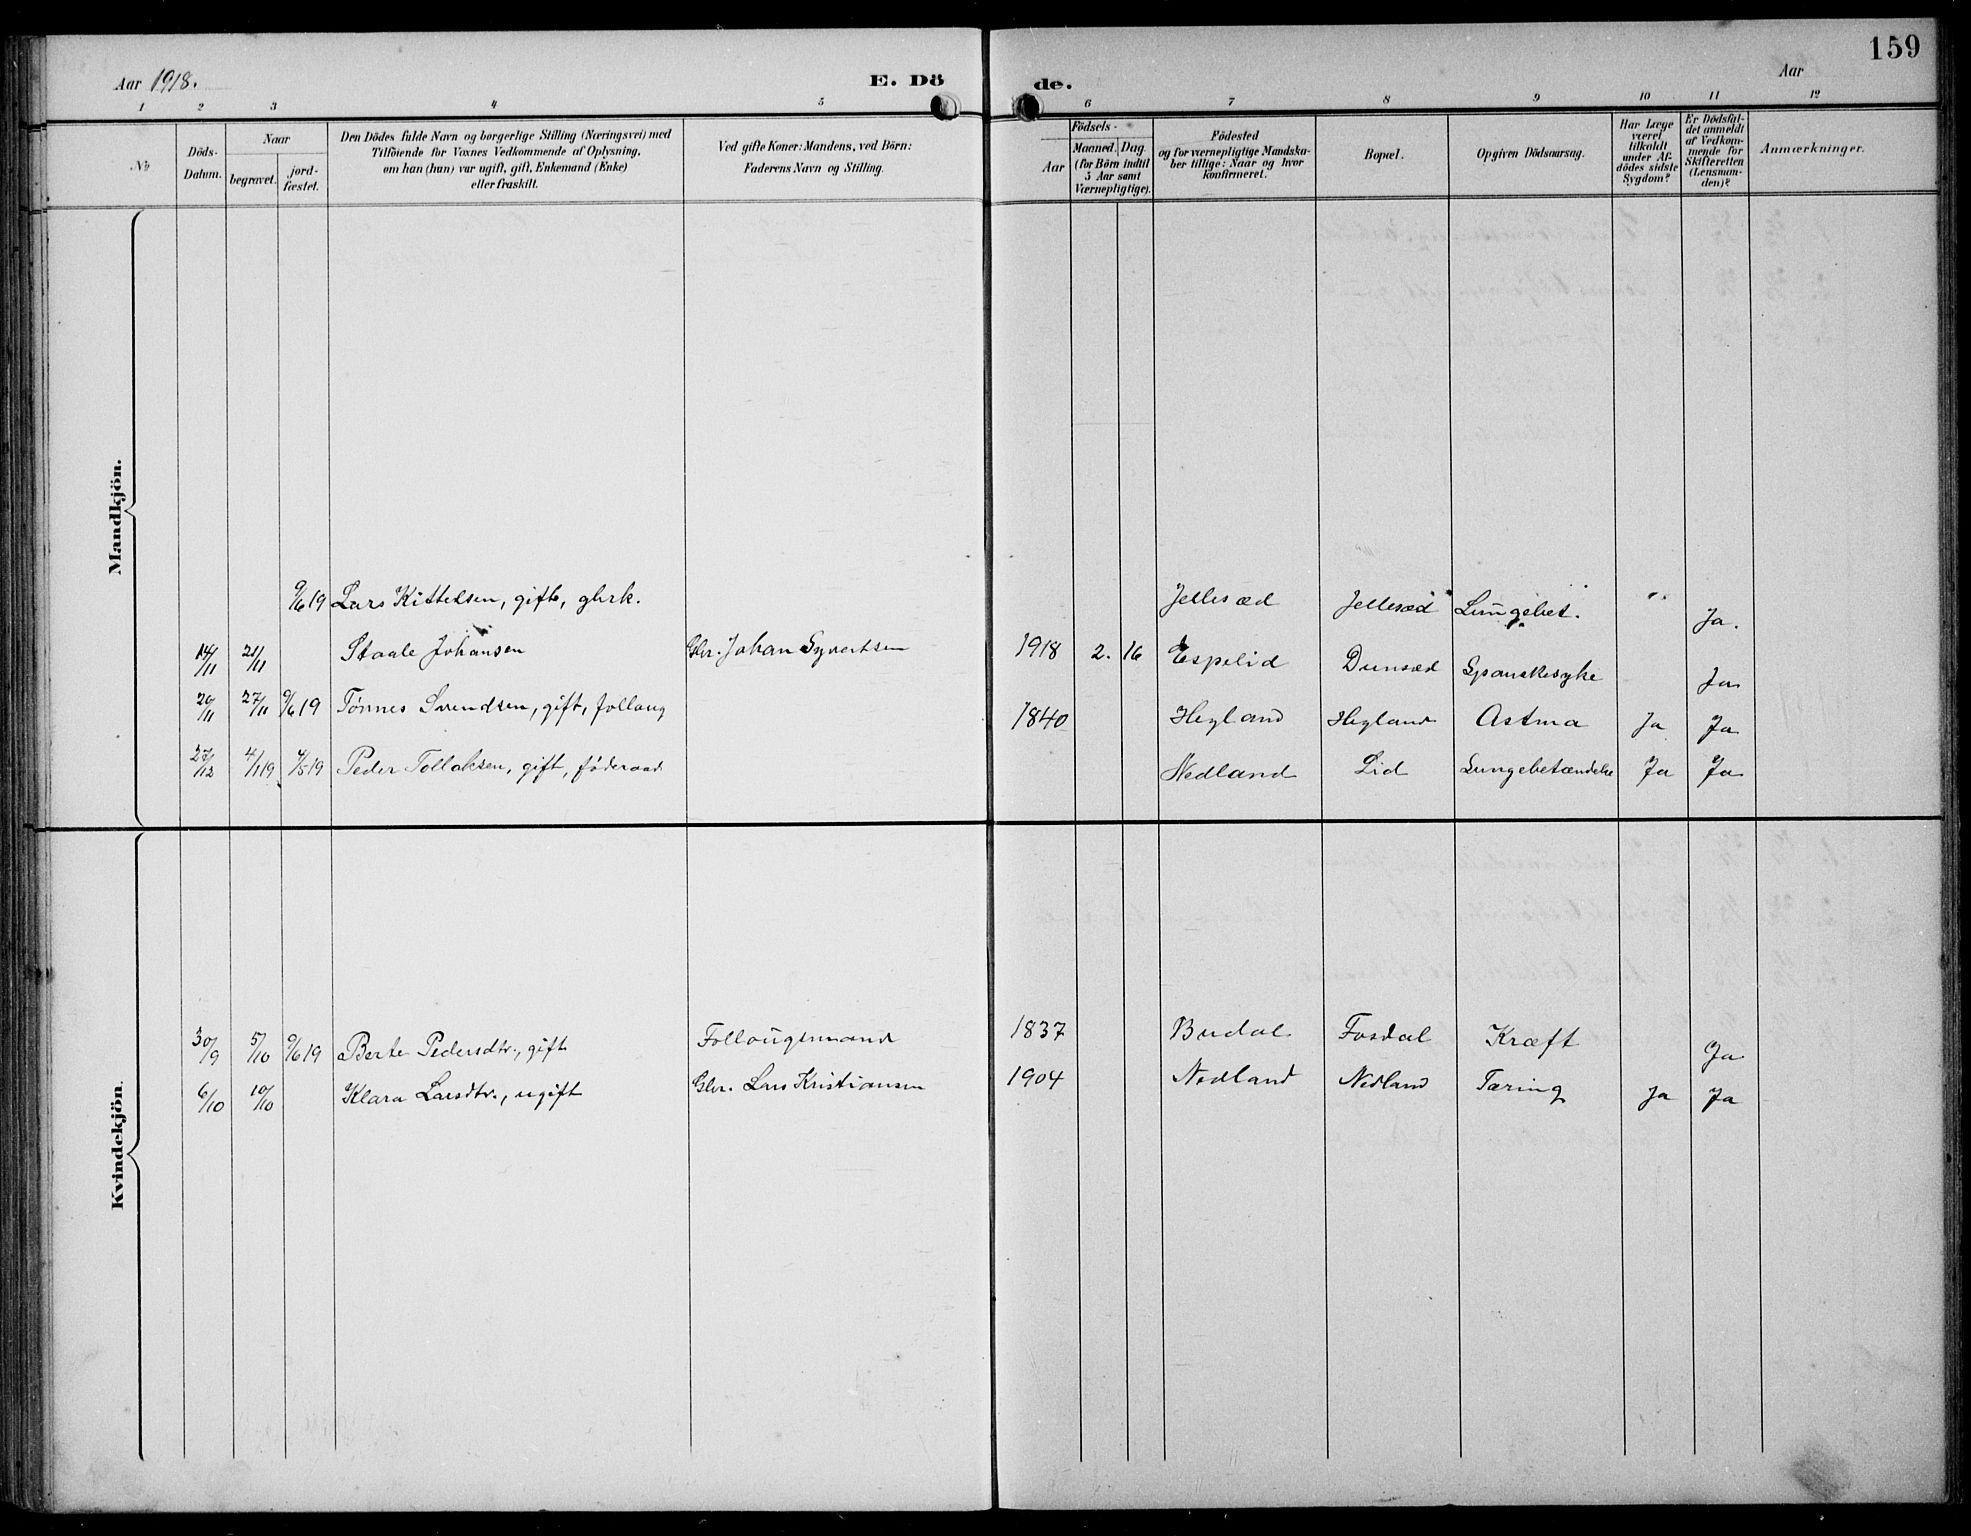 159
Aar 1918. E. Dö de. Aar
1 2 3 4 5 6 7 8 9 10 11 12
No
Döds-
Datum.
Naar
begravet.
jord-
fæstet.
Den Dödes fulde Navn og borgerlige Stilling (Næringsvei) med
Tilföiende for Voxnes Vedkommende af Oplysning,
om han (hun) var ugift, gift, Enkemand (Enke)
eller fraskilt.
Ved gifte Koner: Mandens, ved Börn:
Faderens Navn og Stilling.
Födsels-
Aar
Maaned. Dag.
(for Börn indtil
5 Aar samt
Værnepligtige).
Födested
og for værnepligtige Mandska-
ber tillige: Naar og hvor
konfirmeret.
Bopæl.
Opgiven Dödsaarsag.
Har Læge
været
tilkaldt
under Af-
dödes sidste
Sygdom?
Er Dödsfal-
det anmeldt
af Vedkom-
mende for
Skifteretten
(Lensman-
den)?
Anmærkninger.
Mandkjön.
9/6 19 Lars Kittelsen, gift, gbrk. Jellesæd Jellesæd Lungebet. " Ja.
14/11 21/11 Staale Johansen Gbr. Johan Syvertsen 1918 2. 16 Espelid Dunsæd Spanskesyke Ja
20/11 27/11 9/6 19 Tønnes Svendsen, gift, follaug 1840 Hegland Hegland Astma Ja Ja
27/12 4/1 19 4/5 19 Peder Tollaksen, gift, føderaad Nedland Lid Lungebetændelse Ja Ja
Kvindekjön.
30/9 5/10 9/6 19 Berte Pedersdtr., gift Follougsmand 1837 Budal Fosdal Kræft Ja
6/10 10/10 Klara Larsdtr., ugift Gbr. Lars Kristiansen 1904 Nedland Nedland Tæring Ja Ja